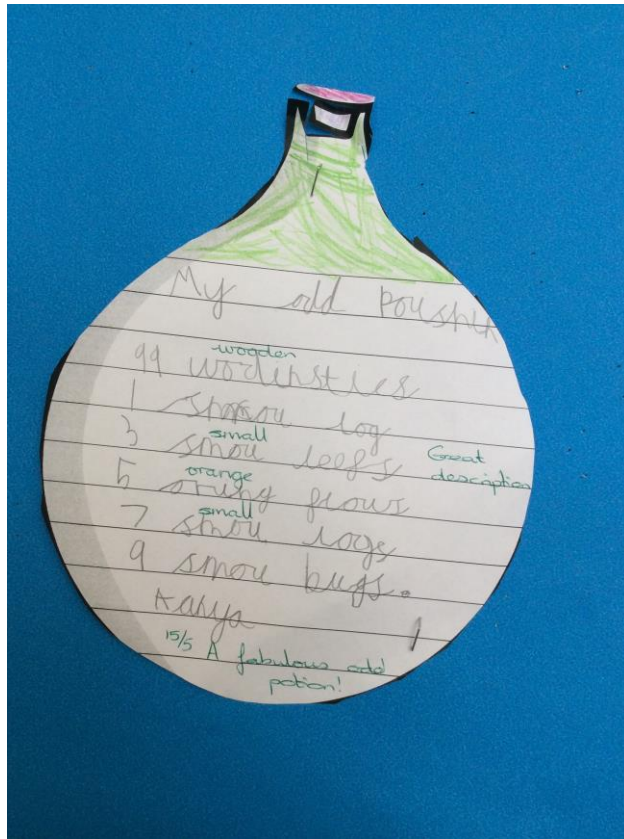 My odd poushin
wooden
99 wodinsties
1 smou log
small
3 smou leefs
Great
orange
description
5 orung flowr
small
7 smou logs
9 smou bugs.
Kanya
15/5 A fabulous odd
potion!